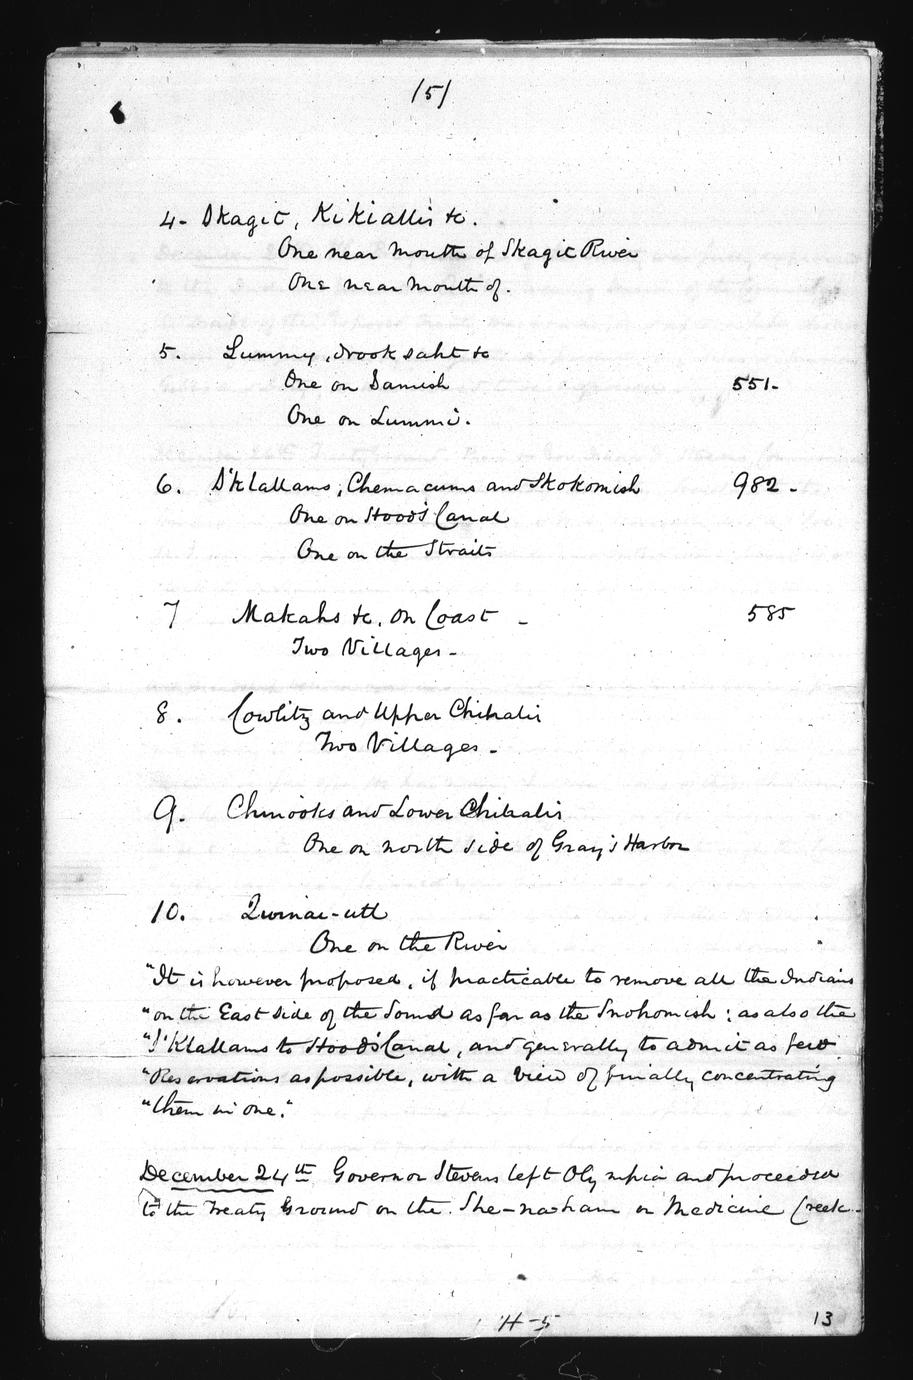 /5/
4- Skagit, Kikiallis &c.
One near mouth of Skagit River
One near mouth of.
5. Lummy, Nooksaht &c
One on Samish 551-
One on Lummi.
6. S'Klallams, Chemacums and Skokomish 982-
One on Hood's Canal
One on the Straits
7 Makahs &c. on Coast - 585
Two Villages-
8. Cowlitz and Upper Chihalis
Two Villages-
9. Chinooks and Lower Chihalis
One on north side of Gray's Harbor
10. Qwinai-utl
One on the River
"It is however proposed, if practicable to remove all the Indians
"on the East side of the Sound as far as the Snohomish; as also the
"S'Klallams to Hood's Canal, and generally to admit as few
"Reservations as possible, with a view of finally concentrating
"them in one."
December 24th Governor Stevens left Olympia and proceeded
to the Treaty Ground on the She-nah-nam or Medicine Creek-
H-5
13